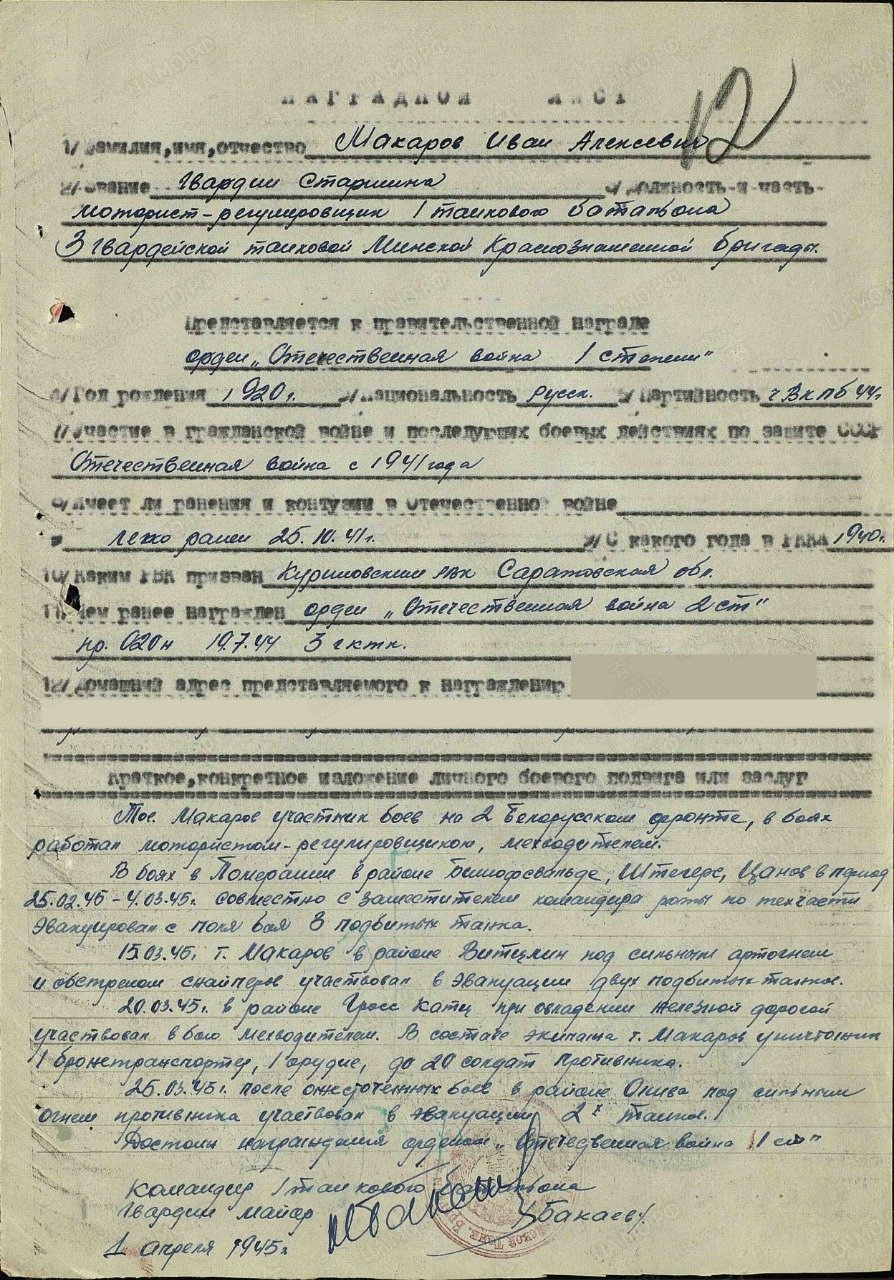 НАГРАДНОЙ ЛИСТ
12
1/ Фамилия, имя, отчество Макаров Иван Алексеевич
2/ Звание Гвардии Старшина 3/ Должность и часть
моторист-регулировщик 1 танкового батальона
3 Гвардейской танковой Минской Краснознаменной бригады.
Представляется к правительственной награде
орден „Отечественная война 1 степени"
4/ Год рождения 1920 г. 5/ Национальность русск. 6/ Партийность чВКПб 44г
7/ Участие в гражданской войне и последующих боевых действиях по защите СССР
Отечественная война с 1941 года
8/ Имеет ли ранения и контузии в Отечественной войне
легко ранен 25.10.41г. 9/ С какого года в РККА 1940г.
10/ Каким РВК призван Куриловским рвк Саратовская обл.
11/ Чем ранее награжден орден „Отечественная война 2 ст"
пр. 020н 19.7.44 3 гктк.
12/ Домашний адрес представляемого к награждению
Краткое, конкретное изложение личного боевого подвига или заслуг
Тов. Макаров участник боев на 2 Белорусском фронте, в боях
работал мотористом-регулировщиком, мехводителем.
В боях в Померании в районе Бишофсвальде, Штегерс, Цанов в период
25.02.45 - 4.03.45г. совместно с заместителем командира роты по техчасти
эвакуировал с поля боя 3 подбитых танка.
15.03.45г. т. Макаров в районе Витцлин под сильным артогнем
и обстрелом снайперов участвовал в эвакуации двух подбитых танков.
20.03.45г. в районе Гросс Катц при овладении железной дорогой
участвовал в бою мехводителем. В составе экипажа т. Макаров уничтожил
1 бронетранспортер, 1 орудие, до 20 солдат противника.
25.03.45г. после ожесточенных боев в районе Олива под сильным
огнем противника участвовал в эвакуации 2х танков.
Достоин награждения орденом „Отечедвенная война 1 ст"
Командир 1 танкового батальона
Гвардии майор /Бакаев/
1 апреля 1945г.